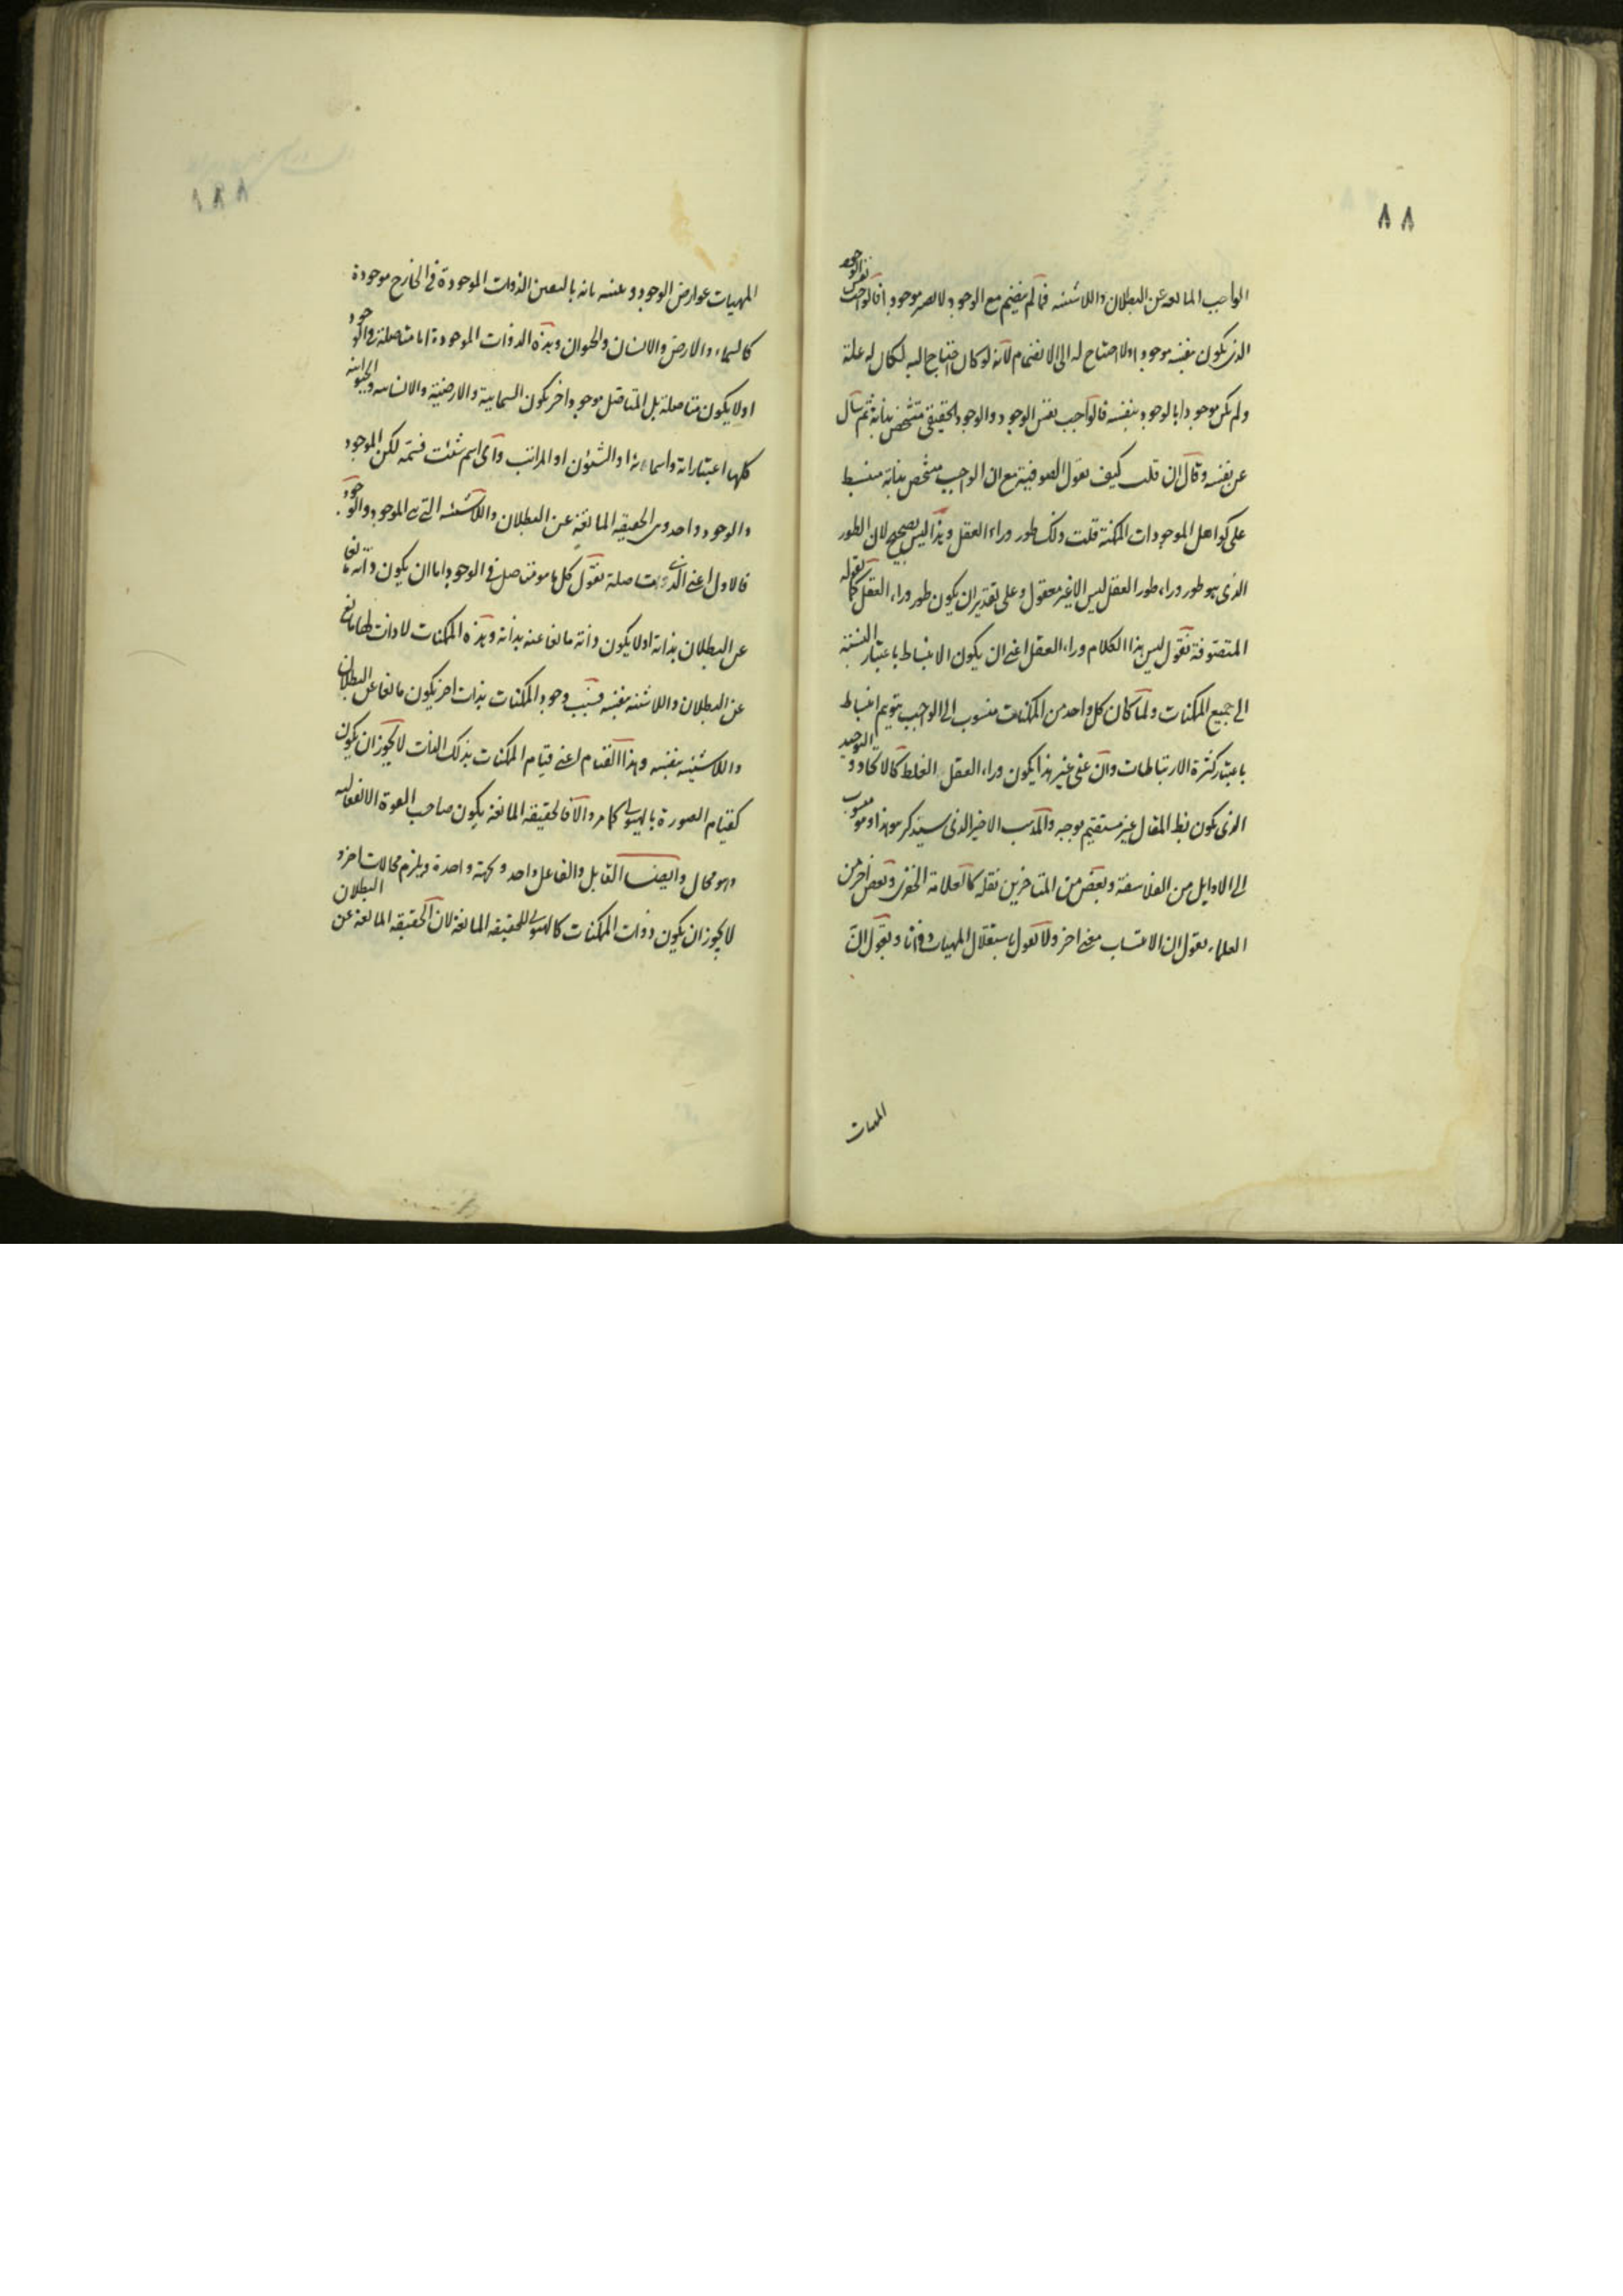 ٨٨
الواجب المانعه عن البطلان واللاشيئيه فما لم ينضم مع الوجود لا يصير موجودا فالواجب نفس الوجود
الذى يكون بنفسه موجودا ولا احتياج له الى الانضمام لانه لو كان احتياج اليه لكان له علة
ولم يكن موجودا بالوجود بنفسه فالواجب نفس الوجود والوجود الحقيقى متشخص بذاته ثم سأل
عن نفسه وقال ان قلت كيف تقول الصوفية مع ان الواجب متشخص بذاته منبسط
على كواهل الموجودات الممكنة قلت ذلك طور وراء العقل وهذا ليس بصحيح لان الطور
الذى هو طور وراء طور العقل ليس الا غير معقول وعلى تقدير ان يكون طور وراء العقل كما تقوله
المتصوفة نقول ليس هذا الكلام وراء العقل اعنى ان يكون الانبساط باعتبار النسبة
الى جميع الممكنات ولما كان كل واحد من الممكنات منسوب الى الواجب يتوهم انبساط
باعتبار كثرة الارتباطات وان عنى غير هذا يكون وراء العقل الغلط كالاتحاد والتوحيد
الذى يكون بط المقال غير مستقيم بوجه والمذهب الاخير الذى سيذكر هو هذا وهو منسوب
الى الاوايل من الفلاسفة وبعض من المتاخرين نقله كالعلامة الخفرى وبعض اخر من
العلماء يقول ان الانتساب معنى اخر ولا يقول باستقلال المهيات وذواتا ويقول ان
المهيات
١٨٨
المهيات عوارض الوجود وعنينه بانه بالتعين الذوات الموجودة فى الخارج موجودة
كالسماء والارض والانسان والحيوان وهذه الذوات الموجودة اما متاصلة فى الوجود
او لا يكون متاصلة بل المتاصل موجود اخر يكون السمائية والارضية والانسانيه والحيوانيه
كلها اعتباراته واسماءه او الشئون او المراتب واى اسم شئت فسمه لكن الموجود
والوجود واحد وهى الحقيقه المانعة عن البطلان واللاشيئيه التى هى الموجود والوجود
فالاول اعنى الذى متاصلة نقول كل ما هو متاصل فى الوجود اما ان يكون ذاته مانعا
عن البطلان بذاته او لا يكون ذاته مانعا عنه بذاته وهذه الممكنات لا ذات لها مانع
عن البطلان واللاشيئيه بنفسه فسبب وجود الممكنات بذات اخر يكون مانعا عن البطلان
واللاشيئيه بنفسه وهذا القيام اعنى قيام الممكنات بذلك الذات لا يجوز ان يكون
كقيام الصورة بالهيولى كما مر والا فالحقيقه المانعة يكون صاحب القوة الانفعاليه
وهو محال وايضا القابل والفاعل واحد وبجهة واحدة ويلزم محالات اخر و
لا يجوز ان يكون ذوات الممكنات كالهيولى للحقيقه المانعة لان الحقيقه المانعة عن البطلان